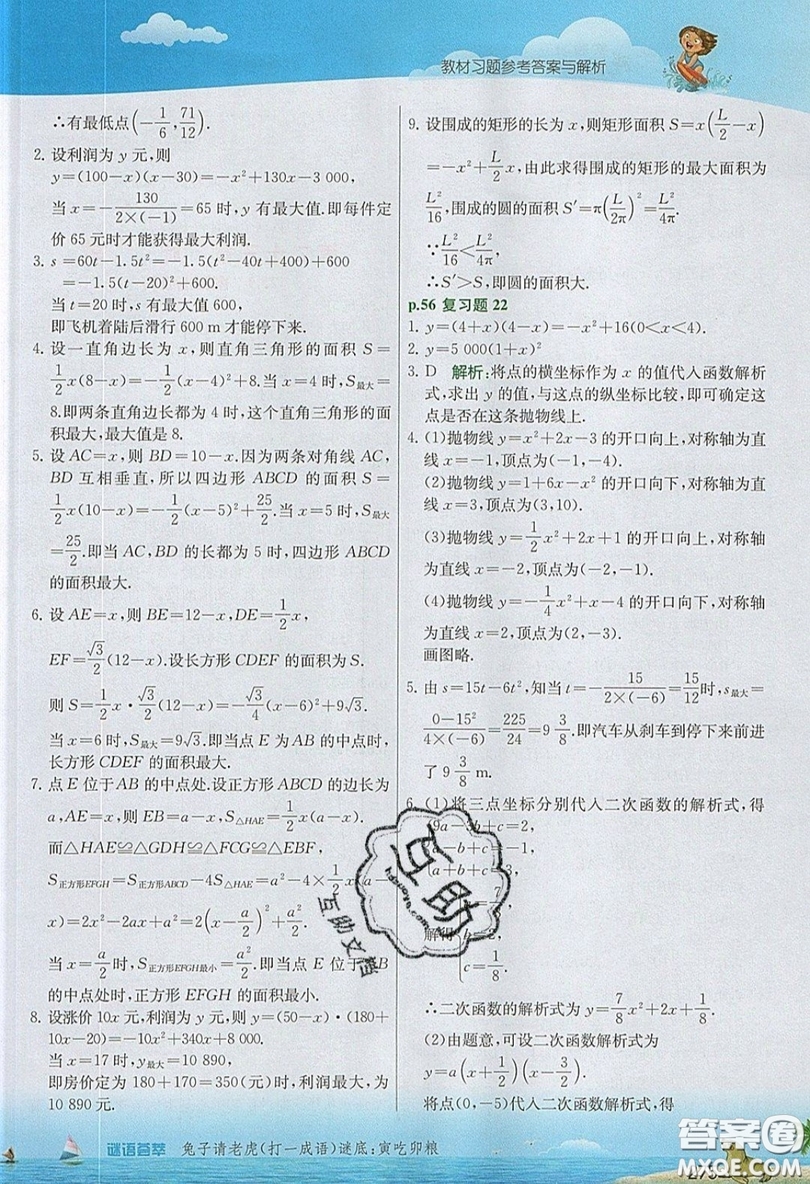 教材习题参考答案与解析
∴有最低点(-1/6, 71/12).
2. 设利润为 y 元,则
y=(100-x)(x-30)=-x²+130x-3 000,
当 x=-130/(2×(-1))=65 时,y 有最大值.即每件定
价 65 元时才能获得最大利润.
3. s=60t-1.5t²=-1.5(t²-40t+400)+600
=-1.5(t-20)²+600.
当 t=20 时,s 有最大值 600,
即飞机着陆后滑行 600 m 才能停下来.
4. 设一直角边长为 x,则直角三角形的面积 S=
1/2x(8-x)=-1/2(x-4)²+8.当 x=4 时,S最大=
8.即两条直角边长都为 4 时,这个直角三角形的面
积最大,最大值是 8.
5. 设 AC=x,则 BD=10-x.因为两条对角线 AC,
BD 互相垂直,所以四边形 ABCD 的面积 S=
1/2x(10-x)=-1/2(x-5)²+25/2.当 x=5 时,S最大
=25/2.即当 AC,BD 的长都为 5 时,四边形 ABCD
的面积最大.
6. 设 AE=x,则 BE=12-x,DE=1/2x,
EF=√3/2(12-x).设长方形 CDEF 的面积为 S.
则 S=1/2x·√3/2(12-x)=-√3/4(x-6)²+9√3.
当 x=6 时,S最大=9√3.即当点 E 为 AB 的中点时,
长方形 CDEF 的面积最大.
7. 点 E 位于 AB 的中点处.设正方形 ABCD 的边长为
a,AE=x,则 EB=a-x,S△HAE=1/2x(a-x).
而△HAE≌△GDH≌△FCG≌△EBF,
S正方形EFGH=S正方形ABCD-4S△HAE=a²-4×1/2x(a-
x)=2x²-2ax+a²=2(x-a/2)²+a²/2.
当 x=a/2 时,S正方形EFGH最小=a²/2.即当点 E 位于 AB
的中点处时,正方形 EFGH 的面积最小.
8. 设涨价 10x 元,利润为 y 元,则 y=(50-x)·(180+
10x-20)=-10x²+340x+8 000.
当 x=17 时,y最大=10 890,
即房价定为 180+170=350(元)时,利润最大,为
10 890 元.
9. 设围成的矩形的长为 x,则矩形面积 S=x(L/2-x)
=-x²+L/2x,由此求得围成的矩形的最大面积为
L²/16,围成的圆的面积 S′=π(L/2π)²=L²/4π.
∵L²/16<L²/4π,
∴S′>S,即圆的面积大.
p.56 复习题 22
1. y=(4+x)(4-x)=-x²+16(0<x<4).
2. y=5 000(1+x)²
3. D 解析:将点的横坐标作为 x 的值代入函数解析
式,求出 y 的值,与这点的纵坐标比较,即可确定这
点是否在这条抛物线上.
4. (1)抛物线 y=x²+2x-3 的开口向上,对称轴为直
线 x=-1,顶点为(-1,-4).
(2)抛物线 y=1+6x-x² 的开口向下,对称轴为直
线 x=3,顶点为(3,10).
(3)抛物线 y=1/2x²+2x+1 的开口向上,对称轴
为直线 x=-2,顶点为(-2,-1).
(4)抛物线 y=-1/4x²+x-4 的开口向下,对称轴
为直线 x=2,顶点为(2,-3).
画图略.
5. 由 s=15t-6t²,知当 t=-15/(2×(-6))=15/12时,s最大=
(0-15²)/(4×(-6))=225/24=9 3/8.即汽车从刹车到停下来前进
了 9 3/8 m.
6. (1)将三点坐标分别代入二次函数的解析式,得
9a-3b+c=2,
a-b+c=-1,
a+b+c=3,
解得
=2,
c=1/8.
∴二次函数的解析式为 y=7/8x²+2x+1/8.
(2)由题意,可设二次函数解析式为
y=a(x+1/2)(x-3/2).
将点(0,-5)代入二次函数解析式,得
互助
互助文档
谜语荟萃 兔子请老虎(打一成语)谜底:寅吃卯粮
答案圈
MXQE.COM